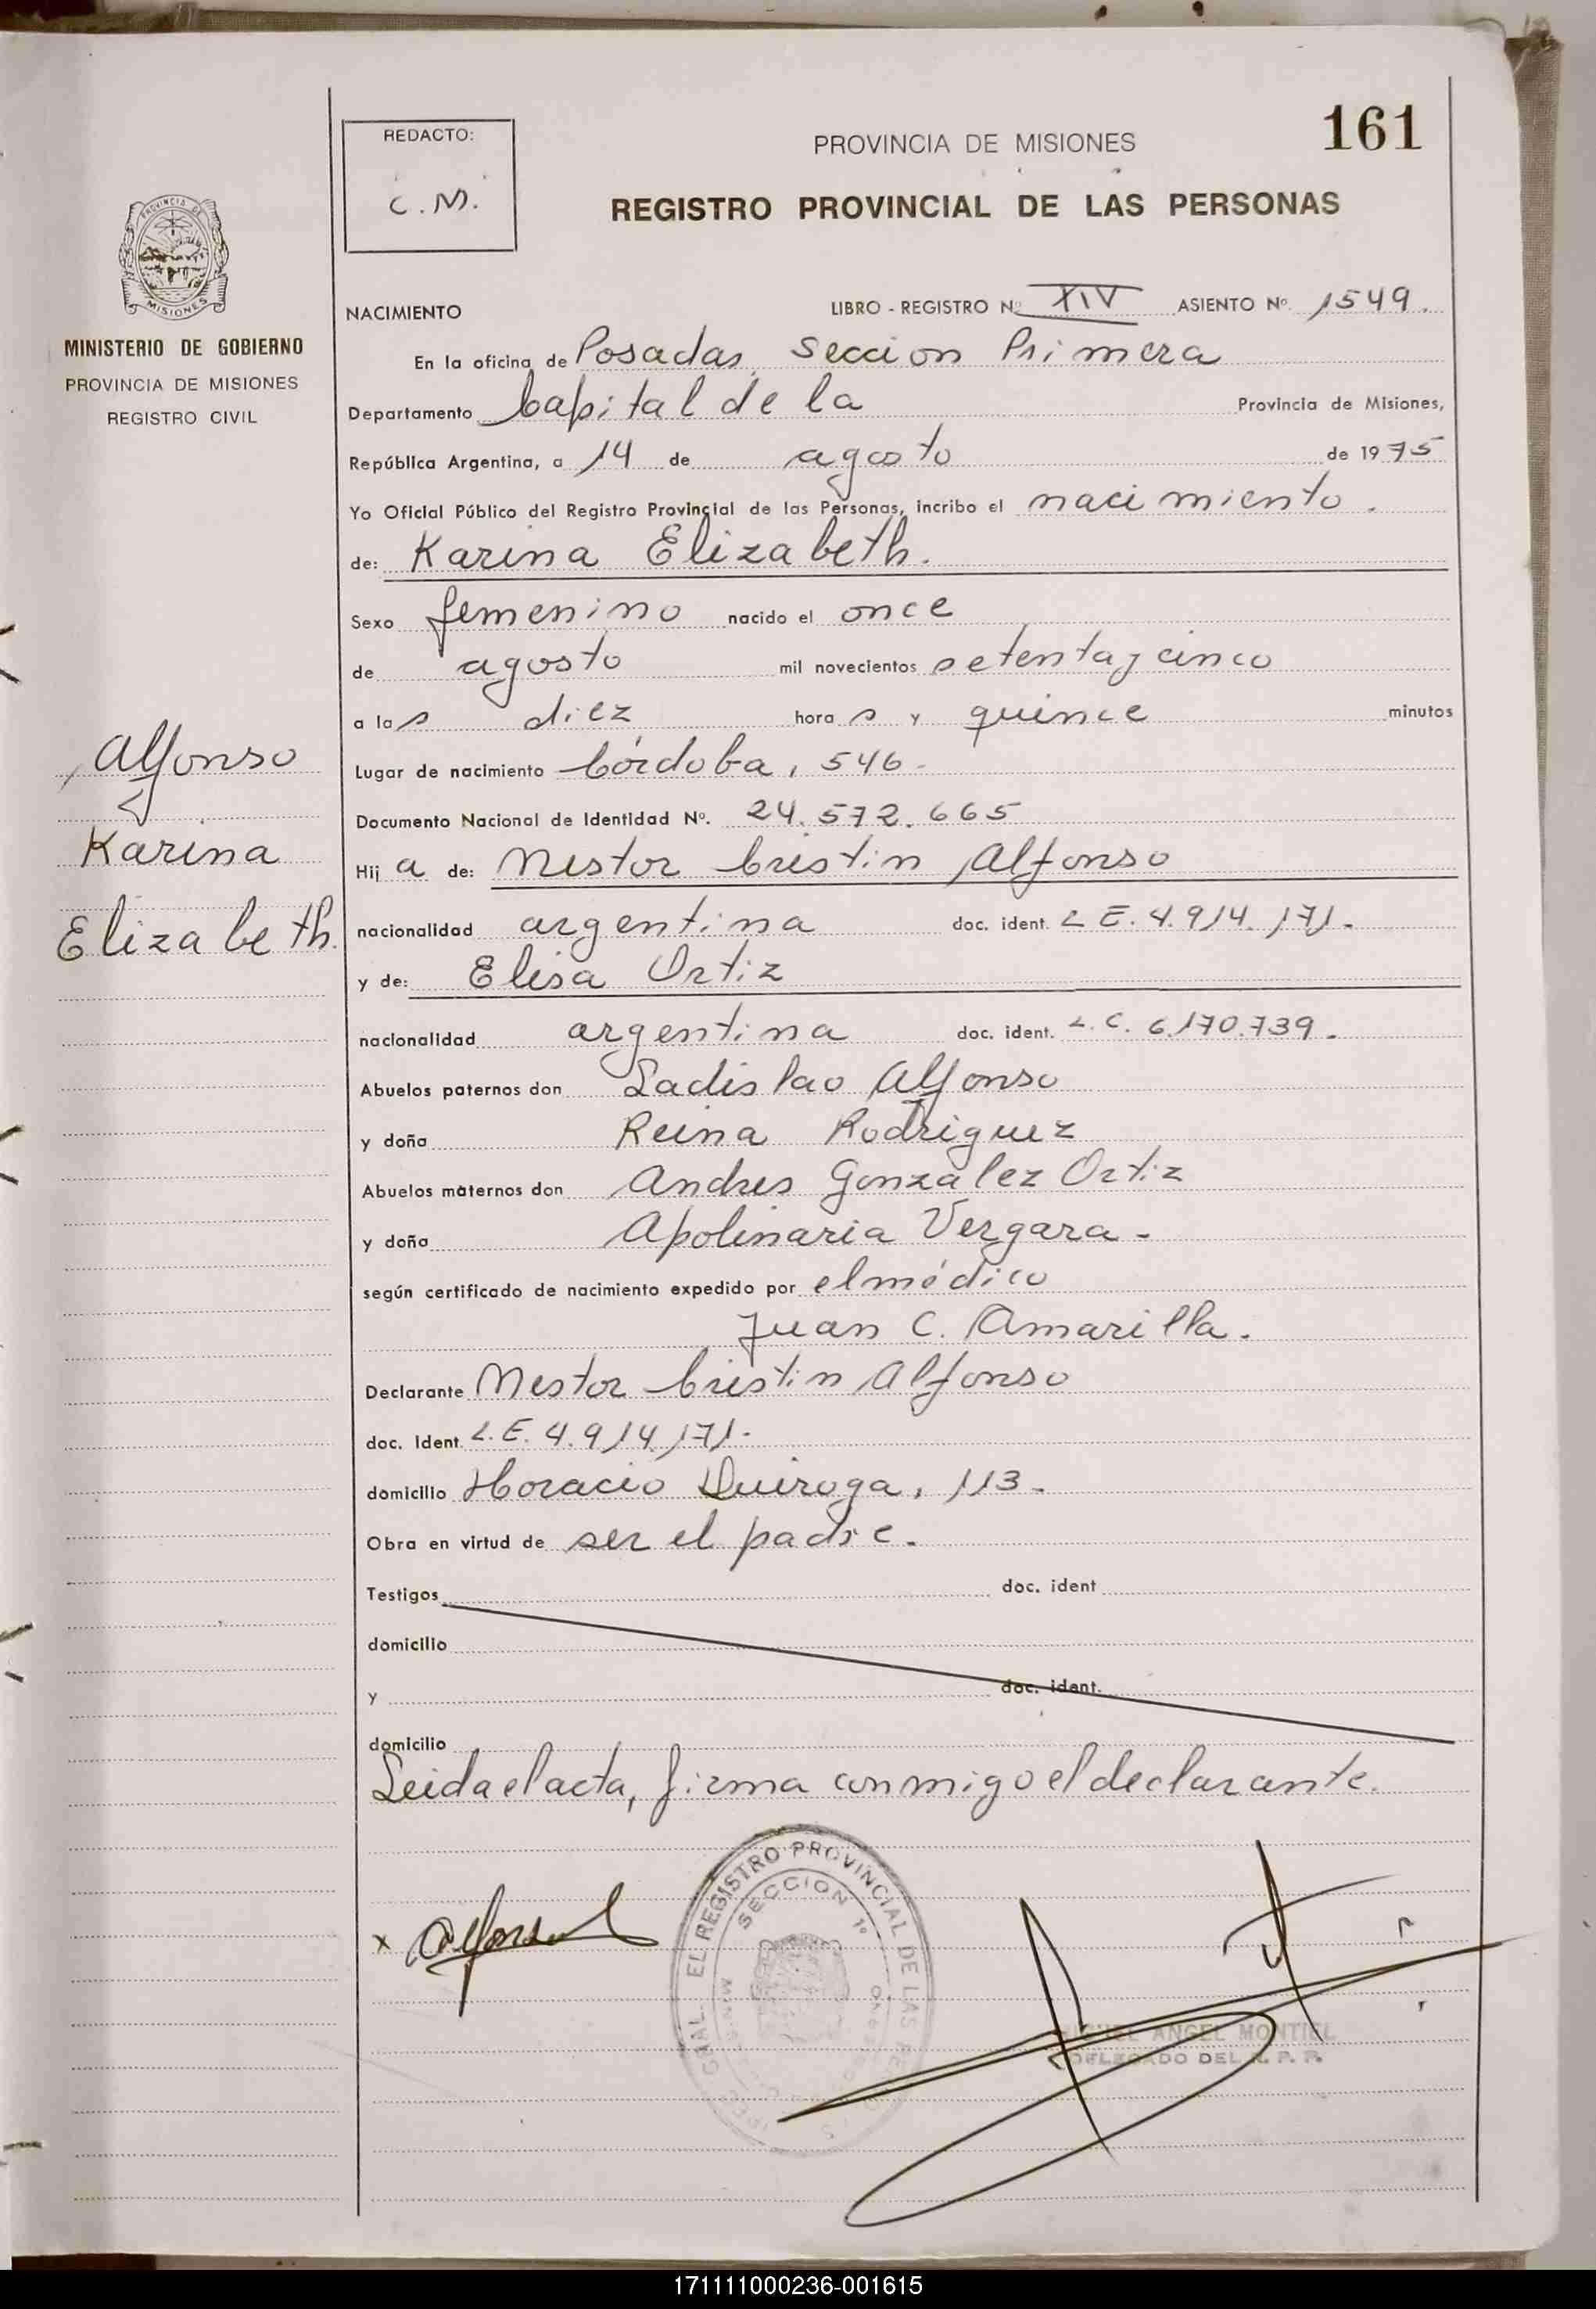 161
REDACTO:
C.M.
PROVINCIA DE MISIONES
REGISTRO PROVINCIAL DE LAS PERSONAS
PROVINCIA DE
MISIONES
MINISTERIO DE GOBIERNO
PROVINCIA DE MISIONES
REGISTRO CIVIL
NACIMIENTO LIBRO - REGISTRO Nº XIV ASIENTO Nº 1549.
En la oficina de Posadas, Seccion Primera
Departamento Capital de la Provincia de Misiones,
República Argentina, a 14 de agosto de 1975
Yo Oficial Público del Registro Provincial de las Personas, incribo el nacimiento.
de: Karina Elizabeth.
Sexo femenino nacido el once
de agosto mil novecientos setenta y cinco
a las diez horas y quince minutos
Lugar de nacimiento Córdoba, 546.
Documento Nacional de Identidad Nº. 24.572.665
Hija de: Nestor Cristin Alfonso
nacionalidad argentina doc. ident. L E. 4.914.171.
y de: Elisa Ortiz
nacionalidad argentina doc. ident. L.C. 6.170.739.
Abuelos paternos don Ladislao Alfonso
y doña Reina Rodriguez
Abuelos maternos don Andres González Ortiz
y doña Apolinaria Vergara.
según certificado de nacimiento expedido por el médico
Juan C. Amarilla.
Declarante Nestor Cristin Alfonso
doc. Ident. L.E. 4.914.171.
domicilio Horacio Quiroga, 113.
Obra en virtud de ser el padre.
Testigos doc. ident
domicilio
y doc. ident.
domicilio
Leida el acta, firma conmigo el declarante.
Alfonso
Karina
Elizabeth.
x Alfonso
EL REGISTRO PROVINCIAL DE LAS
SECCION 1º
ANGEL MONTIEL
DELEGADO DEL R. P. P.
171111000236-001615